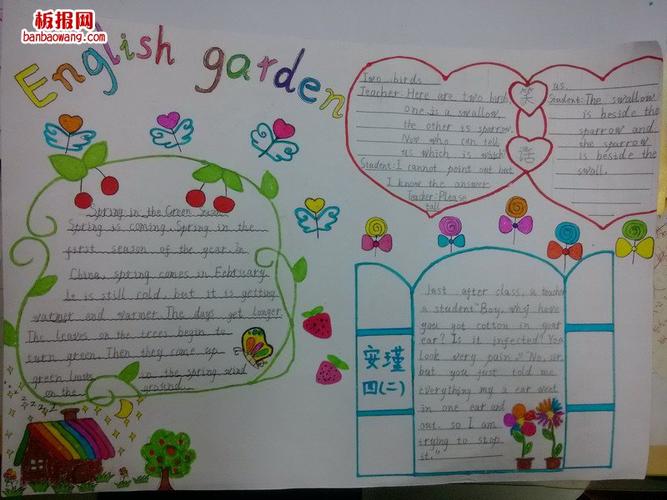 板报网
banbaowang.com
English garden
Two birds
Teacher: Here are two bird,
one is a swallow,
the other is sparrow.
Now who can tell
us which is which
Student: I cannot point out but
I know the answer
Teacher: Please
tall
us.
Student: The swallow
is beside the
sparrow and
the sparrow
is beside the
swall.
笑
话
Spring in the Green Season
Spring is coming. Spring in the
first season of the year. In
China, spring comes in February
It is still cold, but it is getting
warmer and warmer. The days get longer
The leaves on the trees begin to
turn green. Then they come up
green leaves in the spring wind
on the ground.
Just after class, a teacher
a student "Boy, why have
you got cotton in your
ear? Is it infected? You
look very pain." "No, sir,
but you just told me
everything my a ear went
in one ear and
out, so I am
trying to stop
it."
安瑾
四(二)